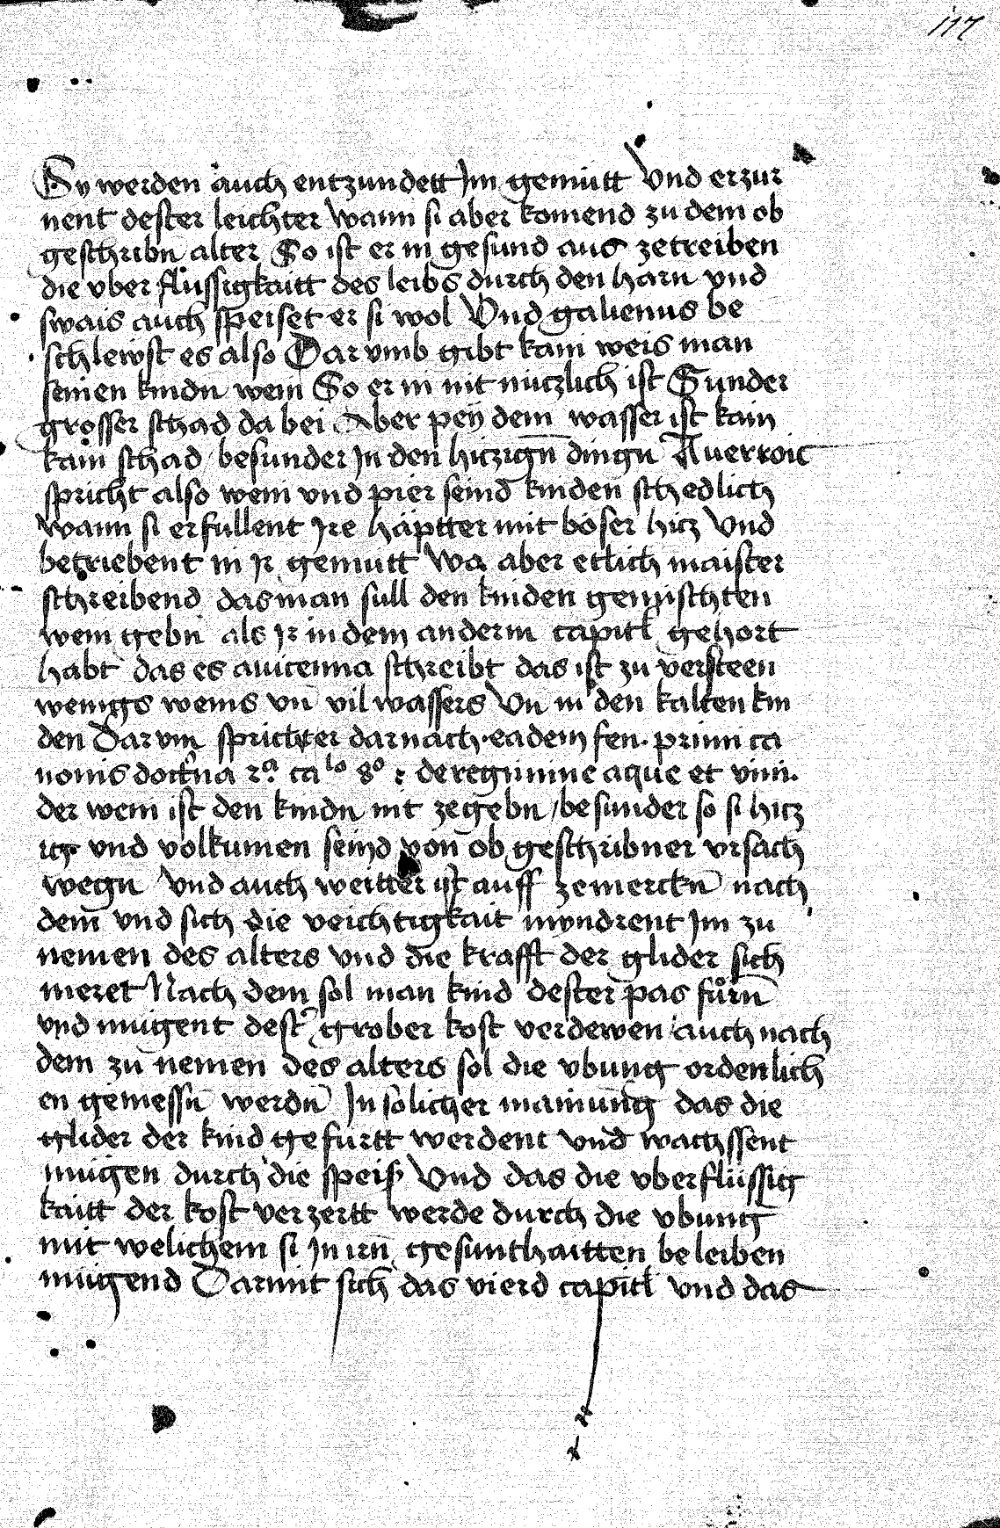 117
Sy werden auch entzundett Im gemütt Vnd erzur
nent dester leichter Wann si aber komend zu dem ob
geschribn alter So ist er in gesund aus zetreiben
die vber flüssigkaitt des leibs durch den harn vnd
swais auch speiset er si wol Vnd galienus be
schlewst es also Dar vmb gibt kain weis man
seinen kindn wein So er in nit nüczlich ist Sunder
grosser schad da bei Aber pey dem wasser ist kain
kain schad besunder In den hiczign dingn Auerrois
spricht also wein vnd pier seind kinden schedlich
wann si erfullent Ire häptter mit böser hicz Vnd
betriebent in Ir gemütt Wa aber etlich maister
schreibend das man sull den kinden gemischten
wein gebn als Ir in dem anderm capitl gehort
habt das es auicenna schreibt das ist zu versteen
wenigs weins vn vil wassers Vn in den kalten kin
den Darvm sprichter darnach eadem fen primi ca
nonis doctrina 2ª calo 8o : de regimine aque et vini.
der wein ist den kindn nit zegebn / besunder so si hicz
ig vnd volkumen seind von ob geschribner vrsach
wegn Vnd auch weitter ist auff zemerckn nach
dem vnd sich die veichtigkait myndrent Im zu
nemen des alters vnd die krafft der glider sich
meret Nach dem sol man kind dester pas fürn
vnd mügent dest grober kost verdewen auch nach
dem zu nemen des alters sol die vbung ordenlich
en gemessn werdn In solicher mainung das die
glider der kind gefürtt werdent vnd wachssent
mügen durch die speis Vnd das die vberflüssig
kaitt der kost verzertt werde durch die vbung
mit welichem si In irn gesunthaitten beleiben
mügend Darmit sich das vierd capitl vnd das